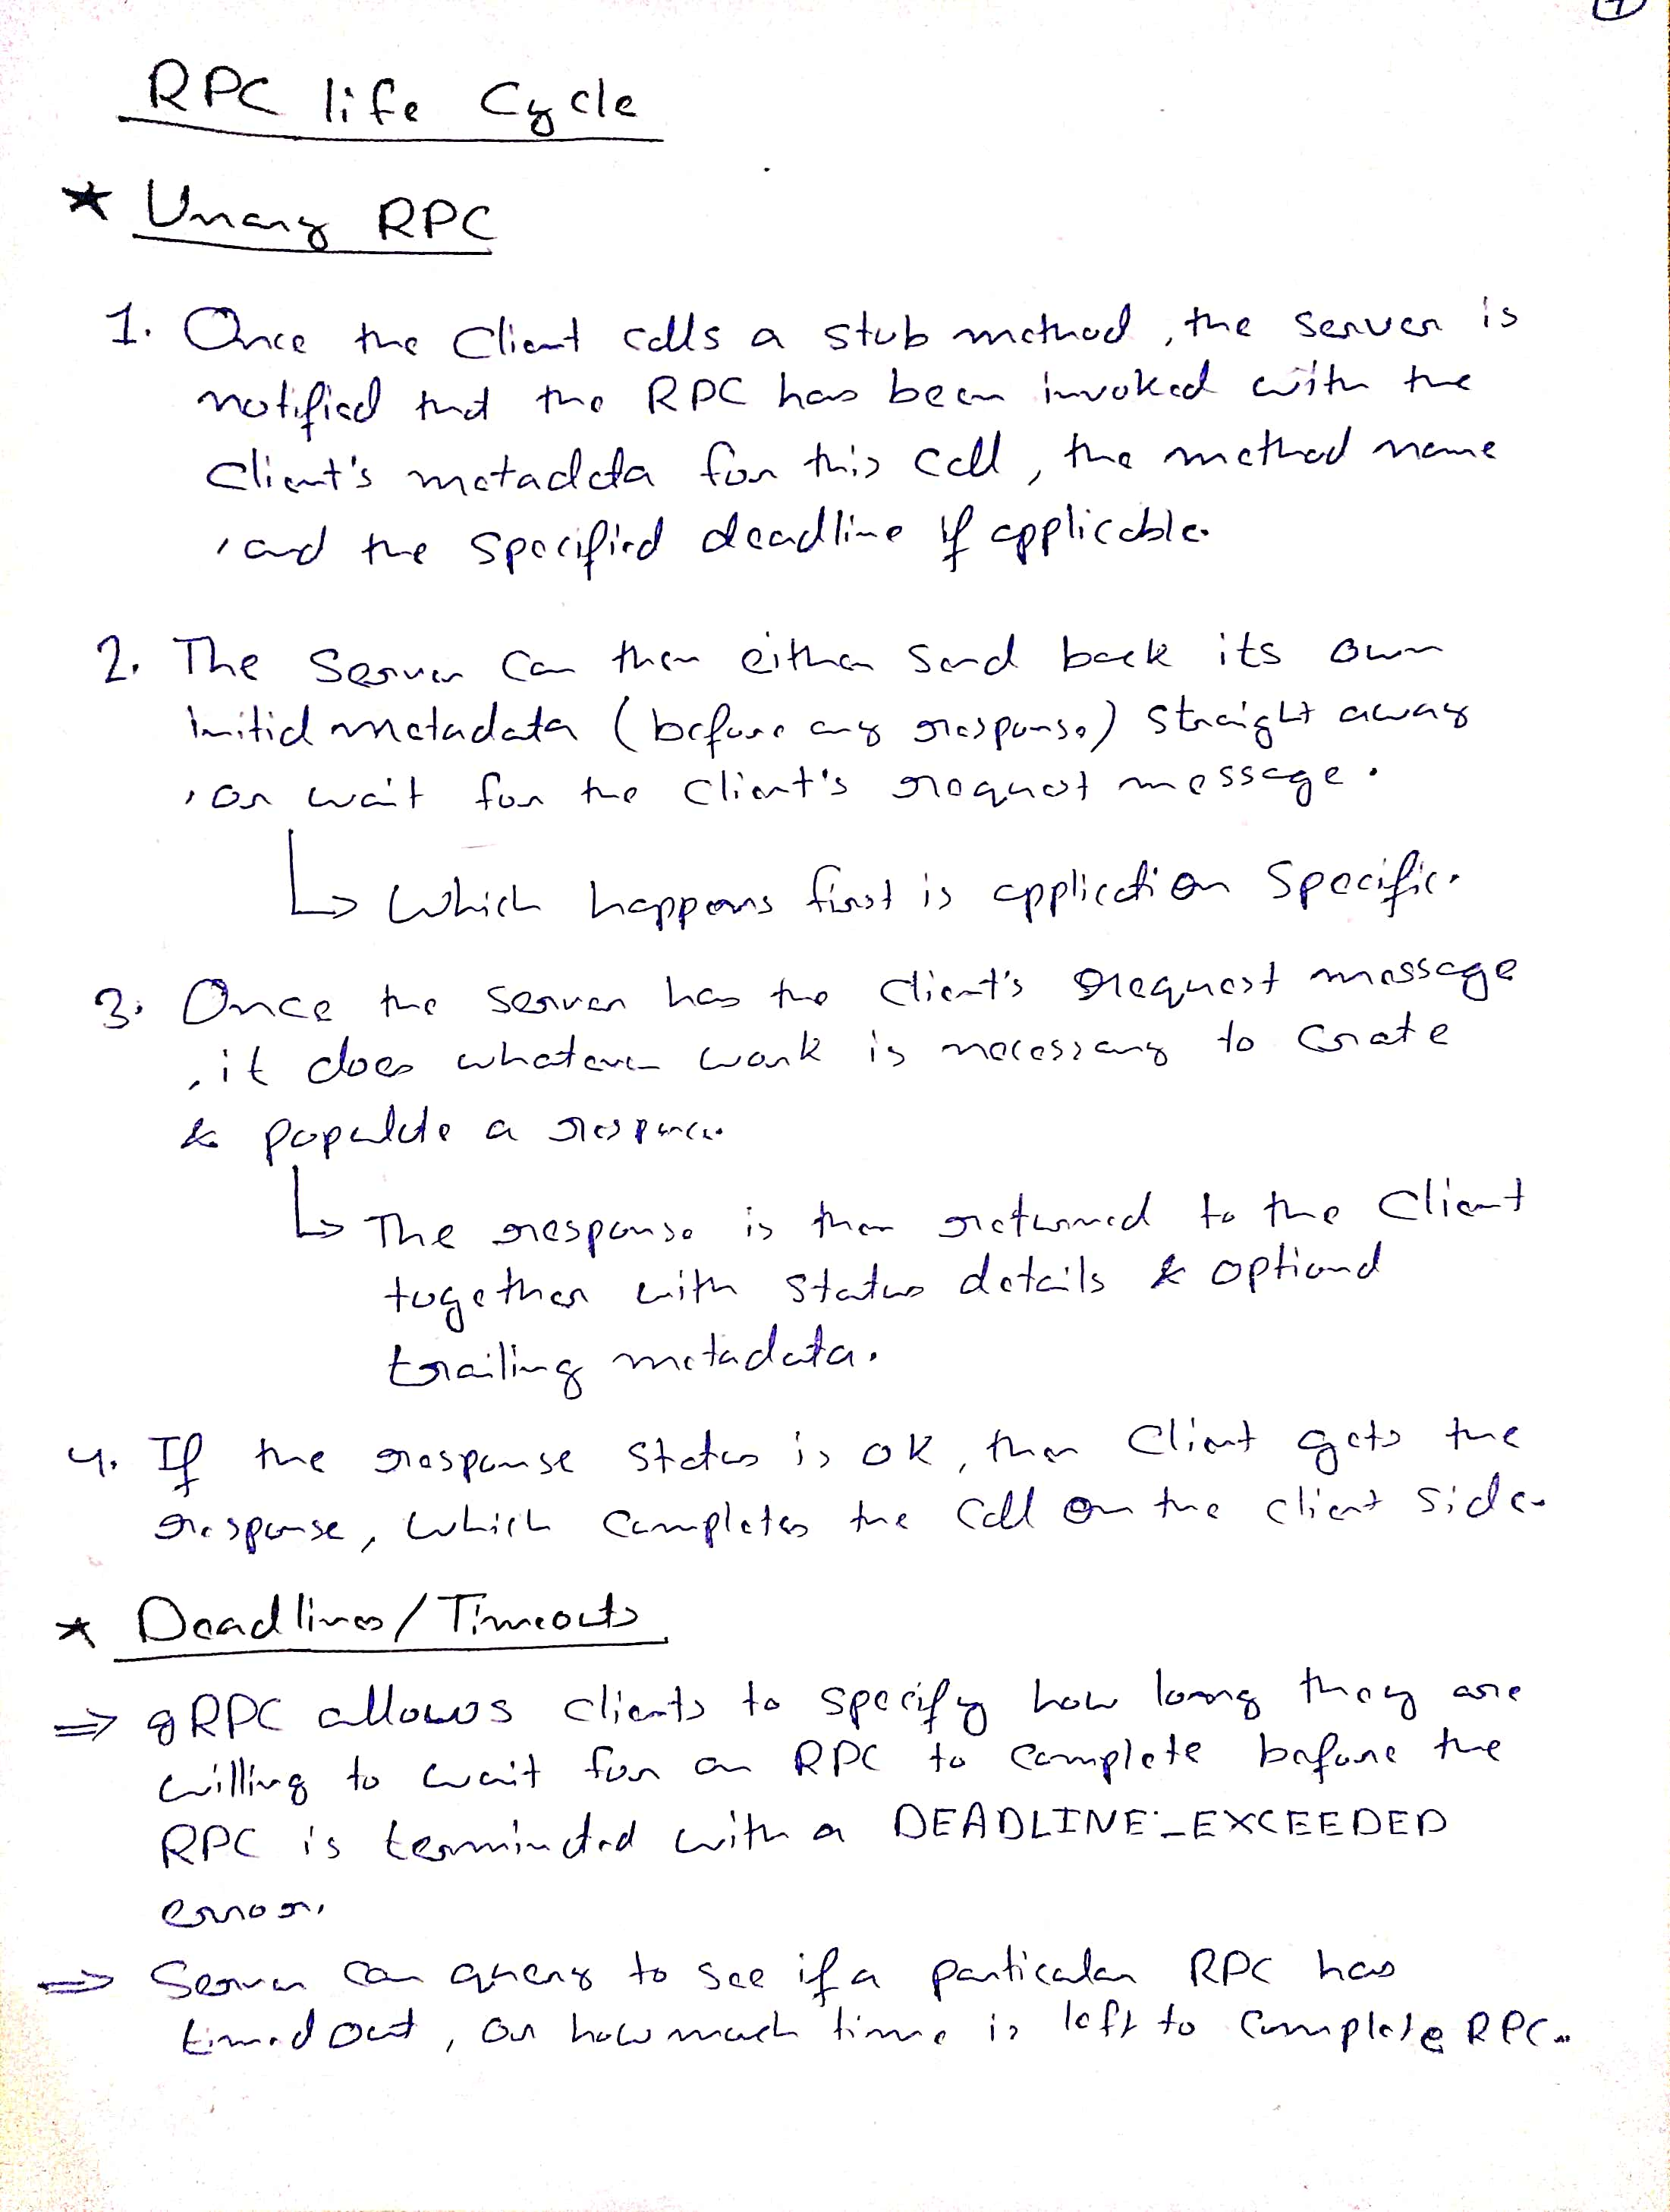 RPC life Cycle
* Unary RPC
1. Once the Client calls a stub method, the server is
notified that the RPC has been invoked with the
Client's metadata for this call, the method name
, and the specified deadline if applicable.
2. The Server Can then either Send back its own
initial metadata (before any response) straight away
, or wait for the Client's request message.
↳ Which happens first is application Specific.
3. Once the server has the Client's request message
, it does whatever work is necessary to Create
& populate a response.
↳ The response is then returned to the Client
together with status details & optional
trailing metadata.
4. If the response status is OK, then Client gets the
response, which completes the call on the client side.
* Deadlines/Timeouts
⇒ gRPC allows clients to specify how long they are
willing to wait for an RPC to complete before the
RPC is terminated with a DEADLINE_EXCEEDED
error.
⇒ Server can query to see if a particular RPC has
timed out, or how much time is left to complete RPC.